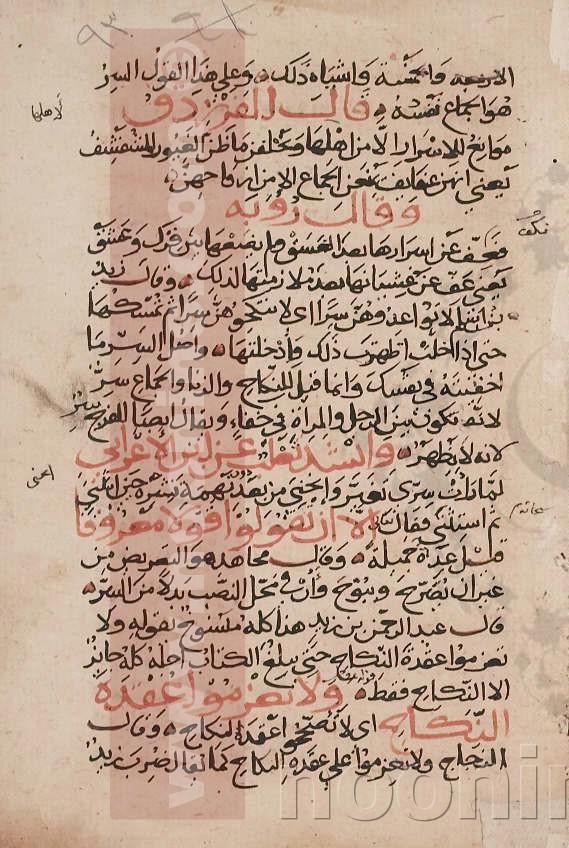 وأشباه ذلك وعلى هذا القول السر
هو الجماع نفسه قال الفرزدق
موانع للاسرار الا من اهلها ويخلفن ما ظن الغيور المشفشف
لاهلها
يعني انهن عفايف يمنعن الجماع الا من ازواجهن
وقال رؤبة
فعف عن اسرارها بعد العسق ولم يضعها بين فرك وعشق
يعني عف عن غشيانها بعد ملازمتها لذلك وقال زيد
بن اسلم لا تواعدوهن سرا اي لا تنكحوهن سرا ثم تمسكها
حتى اذا حلت اظهرت ذلك وادخلتها واصل السر ما
اخفيته في نفسك وانما قيل للنكاح والزنا والجماع سر
لانه يكون بين الرجل والمراة في خفاء ويقال ايضا للفرج سر
لانه لا يظهر وانشد ثعلب عن ابن الاعرابي
لما رات سري تغير وانحنى من بعد نهمة
ثم استثنى فقال الا ان تقولوا قولا معروفا
عدة جميلة وقال مجاهد هو التعريض من
غير ان يصرح ويبوح وان في محل النصب بدلا من السر
قال عبد الرحمن بن زيد هذا كله منسوخ بقوله ولا
تعزموا عقدة النكاح حتى يبلغ الكتاب اجله
الا النكاح فقط ولا تعزموا عقدة
النكاح اي لا تصححوا عقدة النكاح وقال
الزجاج ولا تعزموا على عقدة النكاح كما تقال ضرب زيد
noonin